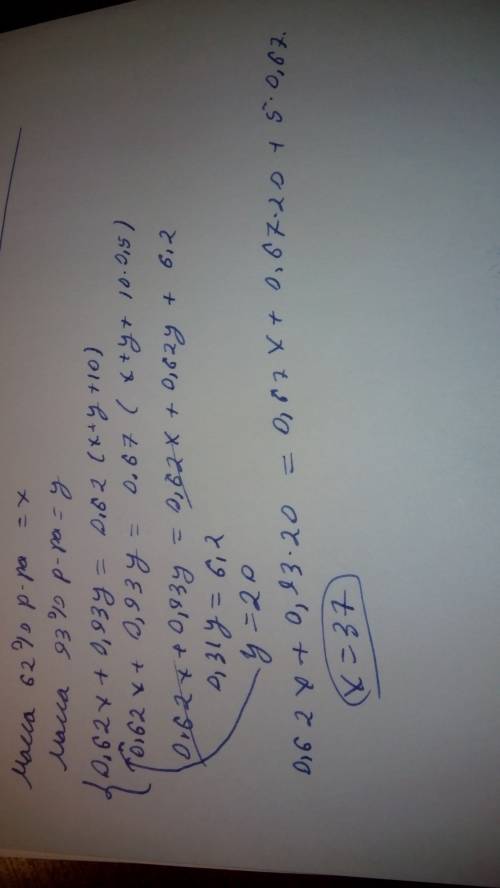 Масса 62% р-ра = x
Масса 93% р-ра = y
{0,62x + 0,93y = 0,62 (x+y+10)
0,62x + 0,93y = 0.67 (x+y+ 10·0,5)
0,62x + 0,93y = 0,62x + 0,62y + 6,2
0,31y = 6,2
y = 20
0,62x + 0,93·20 = 0,67x + 0,67·20 + 5·0,67.
x = 37